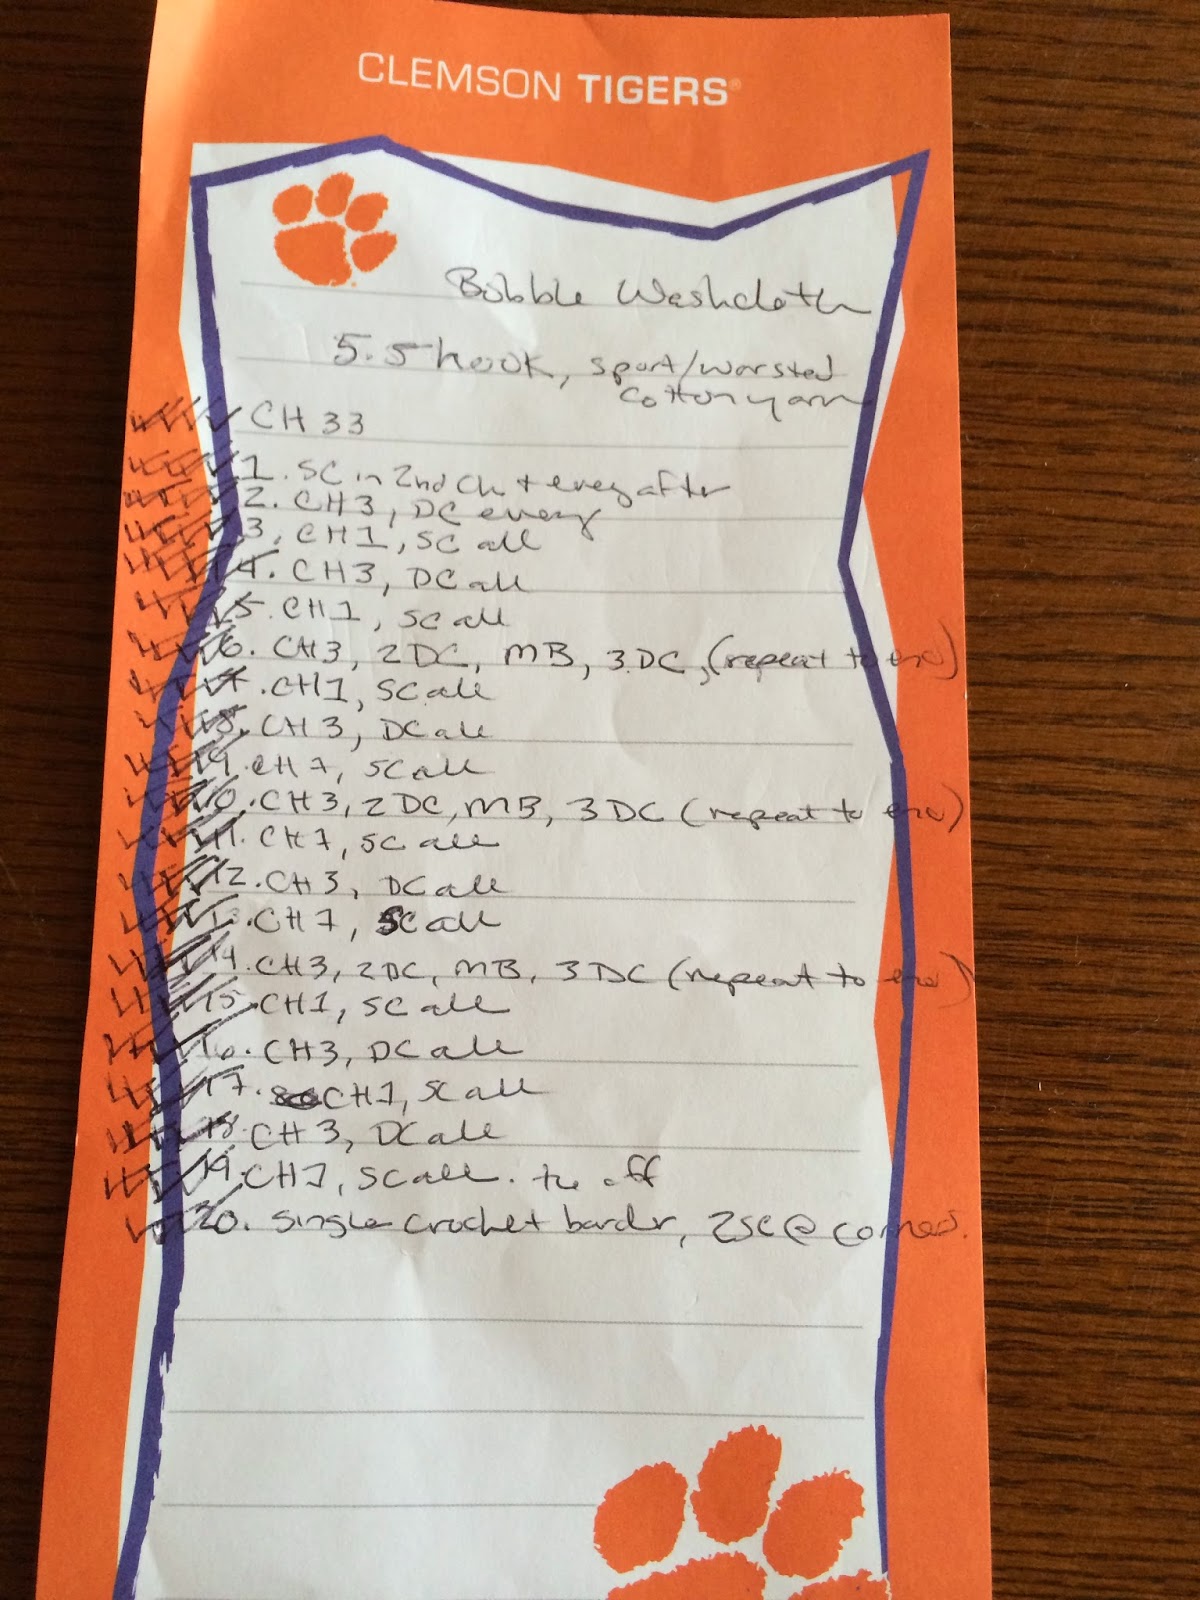 CLEMSON TIGERS®
Bobble Washcloth
5.5 hook, sport/worsted
cotton yarn
CH 33
1. SC in 2nd Ch + every after
2. CH3, DC every
3, CH1, SC all
4. CH3, DC all
5. CH1, SC all
6. CH3, 2DC, MB, 3DC, (repeat to end)
7. CH1, SC all
8. CH3, DC all
9. CH1, SC all
10. CH3, 2DC, MB, 3DC (repeat to end)
11. CH1, SC all
12. CH3, DC all
13. CH1, SC all
14. CH3, 2DC, MB, 3DC (repeat to end)
15. CH1, SC all
16. CH3, DC all
17. CH1, SC all
18. CH3, DC all
19. CH1, SC all. tie off
20. single crochet border, 2SC @ corners.